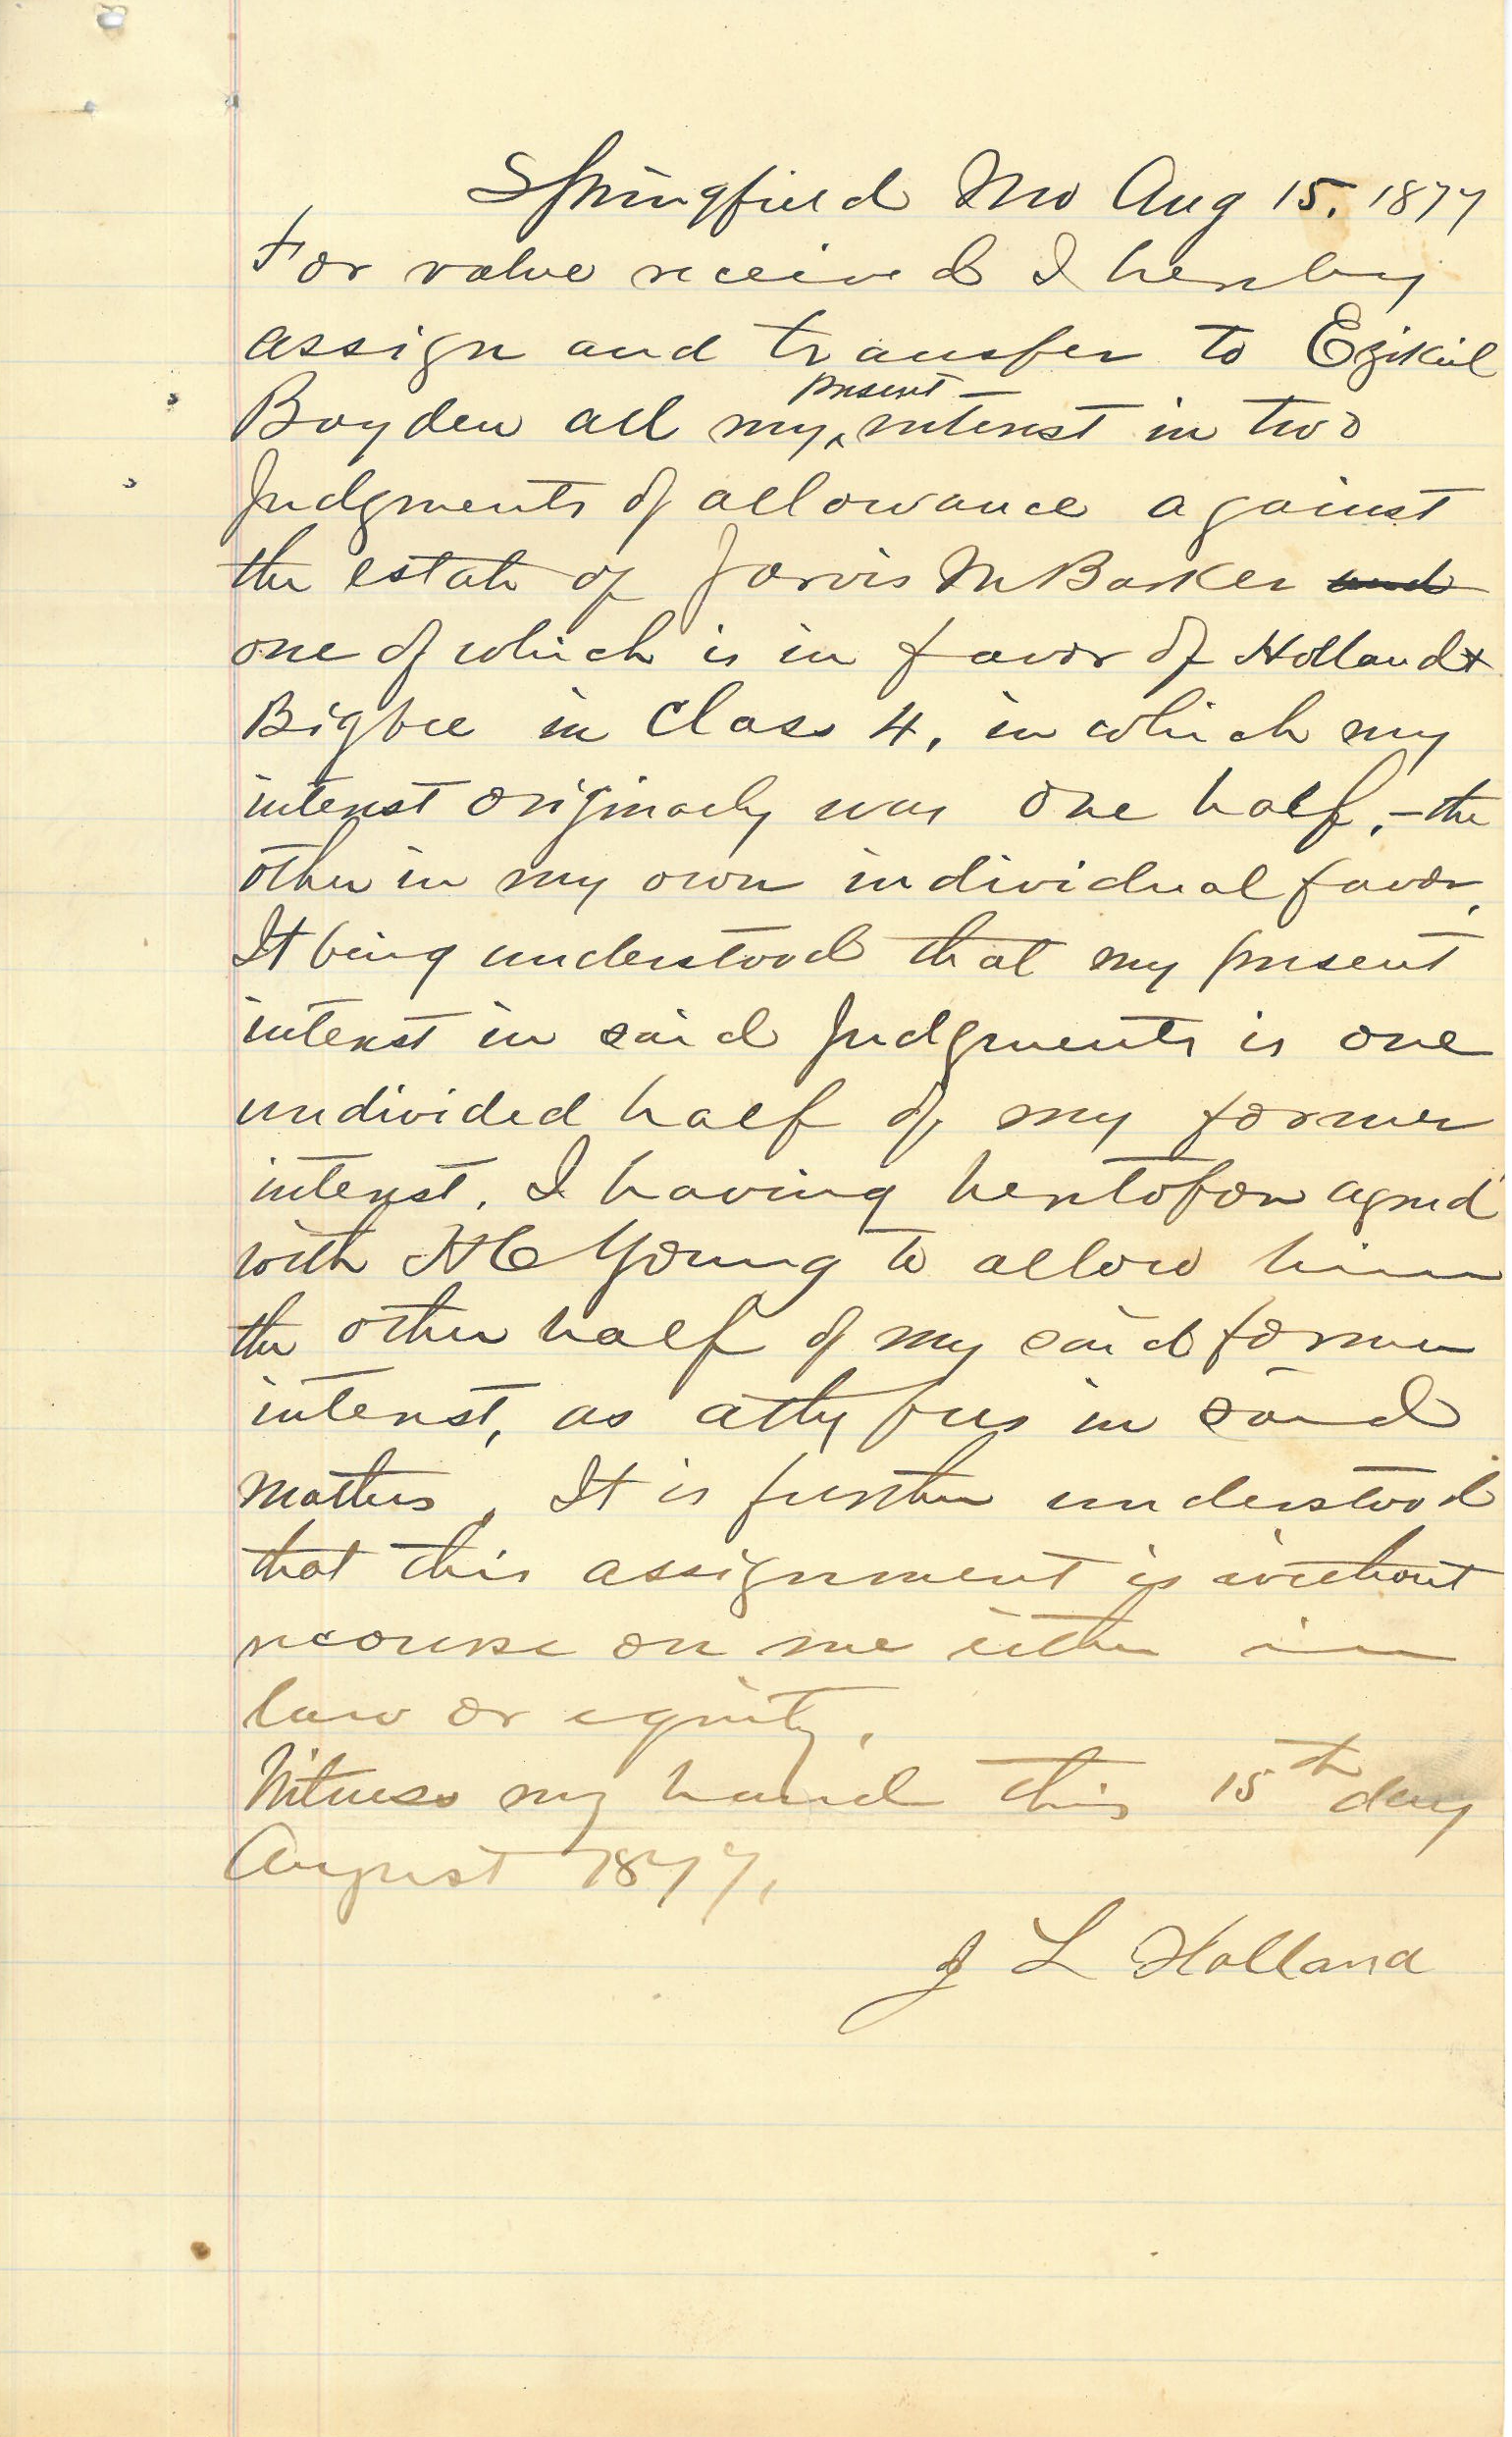 Springfield Mo Aug 15, 1877
For value received I hereby
assign and transfer to Ezikiel
Boyden all my present interest in two
Judgments of allowance against
the estate of Jarvis M Barker and
one of which is in favor of Holland &
Bigbee in Class 4, in which my
interest originaly was one half, - the
other in my own individual favor,
It being understood that my present
interest in said Judgments is one
undivided half of my former
interest, I having heretofore agreed
with H C Young to allow him
the other half of my said former
interest, as atty fees in said
matters, It is further understood
that this assignment is without
recourse on me either in
law or equity,
Witness my hand this 15th day
August 1877,
J L Holland